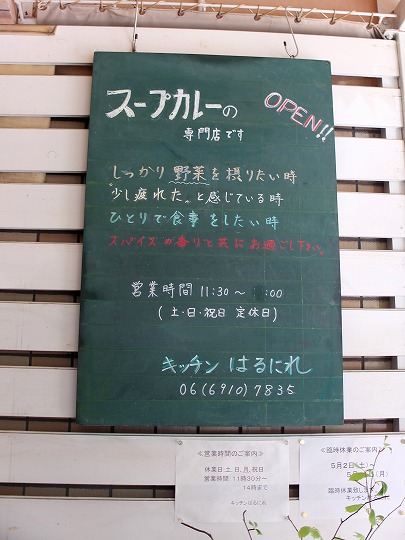 スープカレーの
OPEN!!
専門店です
しっかり野菜を摂りたい時
"少し疲れた"と感じている時
ひとりで食事をしたい時
スパイスの香りと共にお過ごし下さい。
営業時間 11:30〜 :00
(土・日・祝日 定休日)
キッチン はるにれ
06(6910)7835
≪営業時間のご案内≫
休業日:土、日、月、祝日
営業時間:11時30分〜
14時まで
キッチンはるにれ
≪臨時休業のご案内≫
5月2日(土)〜
5月 (月)
臨時休業致し
キッチン